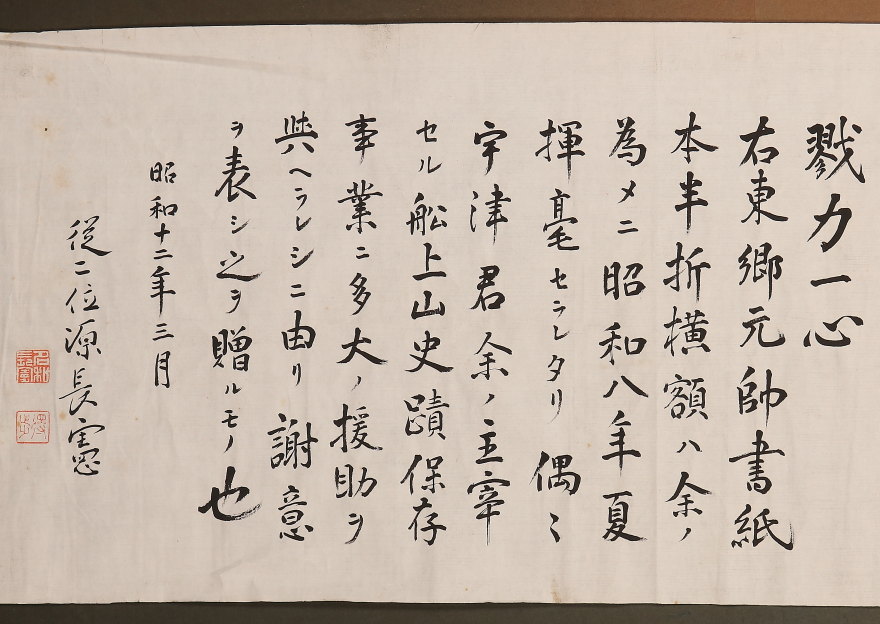 戮力一心
右東郷元帥書紙
本半折横額ハ余ノ
為メニ昭和八年夏
揮毫セラレタリ偶〻
宇津君余ノ主宰
セル船上山史蹟保存
事業ニ多大ノ援助ヲ
與ヘラレシニ由リ謝意
ヲ表シ之ヲ贈ルモノ也
昭和十二年三月
従二位源長憲